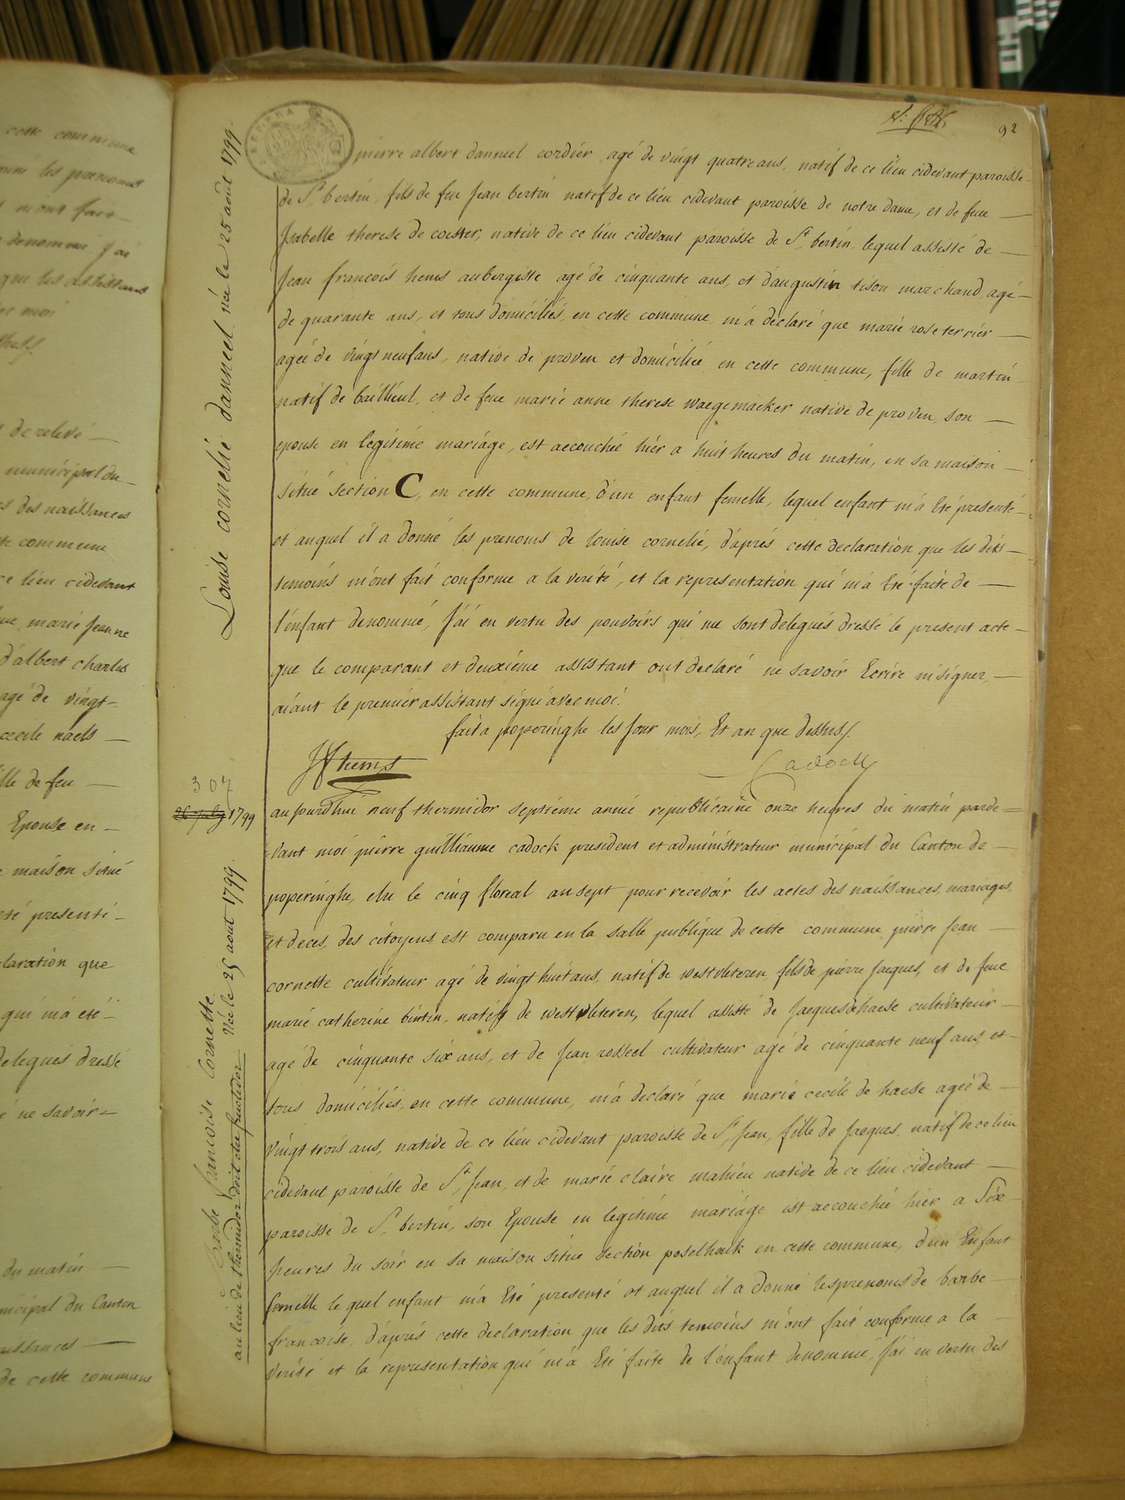 92
pierre albert danneel cordier, agé de vingt quatre ans, natif de ce lieu cidevant paroisse
de St. bertin, fils de feu Jean bertin natif de ce lieu cidevant paroisse de notre dame, et de feue
Isabelle therese de coester, native de ce lieu cidevant paroisse de St. bertin, lequel assisté de
Jean françois hems aubergiste agé de cinquante ans, et d'augustin tison marchand, agé
de quarante ans, et tous domiciliés, en cette commune m'a déclaré que marie rose terrier
ageé de vingt neuf ans, native de proven et domiciliée en cette commune, fille de martin
natif de bailleul, et de feue marie anne therese waegemacker native de proven, son
epouse en legitime mariage, est accouchée hier a huit heures du matin, en sa maison
située section C, en cette commune, d'un enfant femelle, lequel enfant m'a été presenté
et auquel il a donné les prenoms de louise cornelie, d'aprés cette declaration que les dits
temoins m'ont fait conforme a la verité, et la representation qui m'a été faite de
l'enfant denommé, J'ai en vertu des pouvoirs qui me sont delegués dressé le present acte
que le comparant et deuxième assistant ont declaré ne savoir Ecrire ni signer
aiant le premier assistant signé avec moi.
fait a poperinghe les Jour mois, Et an que dessus.
JF hems
Cadock
aujourd'hui neuf thermidor septième année republicaine onze heures du matin parde
vant moi pierre guilliaume cadock president et administrateur municipal du Canton de
poperinghe, elu le cinq floreal an sept pour recevoir les actes des naissances, mariages,
et deces, des citoyens est comparu en la salle publique de cette commune pierre Jean
cornette cultivateur agé de vingt huit ans, natif de westvleteren, fils de pierre Jacques, et de feue
marie catherine bertin, native de westvleteren, lequel assisté de Jacques dehaese cultivateur
agé de cinquante six ans, et de Jean rosseel cultivateur agé de cinquante neuf ans et
tous domiciliés, en cette commune, m'a declaré que marie cecile de haese ageé de
vingt trois ans, native de ce lieu cidevant paroisse de St. Jean, fille de Jacques, natif de ce lieu
cidevant paroisse de St. Jean, et de marie claire mahieu native de ce lieu cidevant
paroisse de St. bertin, son Epouse en legitime mariage est accouchée hier a Six
heures du soir en sa maison située section poeselhoek en cette commune, d'un Enfant
femelle lequel enfant m'a été presenté et auquel il a donné les prenoms de barbe
francoise, d'aprés cette declaration que les dits temoins m'ont fait conforme a la
verité et la representation qui m'a été faite de l'enfant denommé, J'ai en vertu des
Louise cornelie danneel née le 25 août 1799.
307
1799
Barbe francoise Cornette
Née le 25 aout 1799.
au lieu de thermidor doit etre fructidor
cette commune
de relevé
municipal du
des naissances
commune
ce lieu cidevant
marie Jeanne
d'albert charles
agé de vingt
cecile naels
fille de feu
Epouse en
maison située
été presenté
declaration que
qui m'a été
delegués dressé
ne savoir
du matin
municipal du Canton
naissances
de cette commune